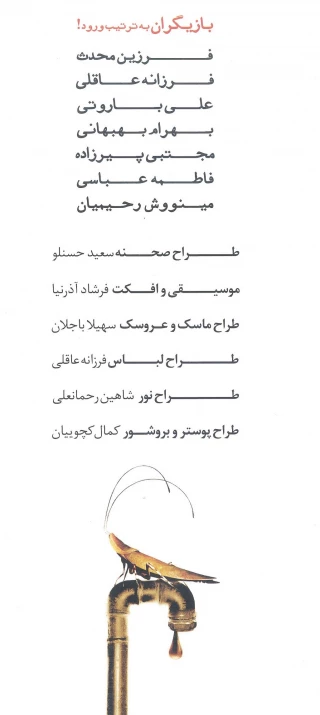 بازیگران به ترتیب ورود!
فرزین محدث
فرزانه عاقلی
علی باروتی
بهرام بهبهانی
مجتبی پیرزاده
فاطمه عباسی
مینووش رحیمیان
طراح صحنه سعید حسنلو
موسیقی و افکت فرشاد آذرنیا
طراح ماسک و عروسک سهیلا باجلان
طراح لباس فرزانه عاقلی
طراح نور شاهین رحمانعلی
طراح پوستر و بروشور کمال کچوییان